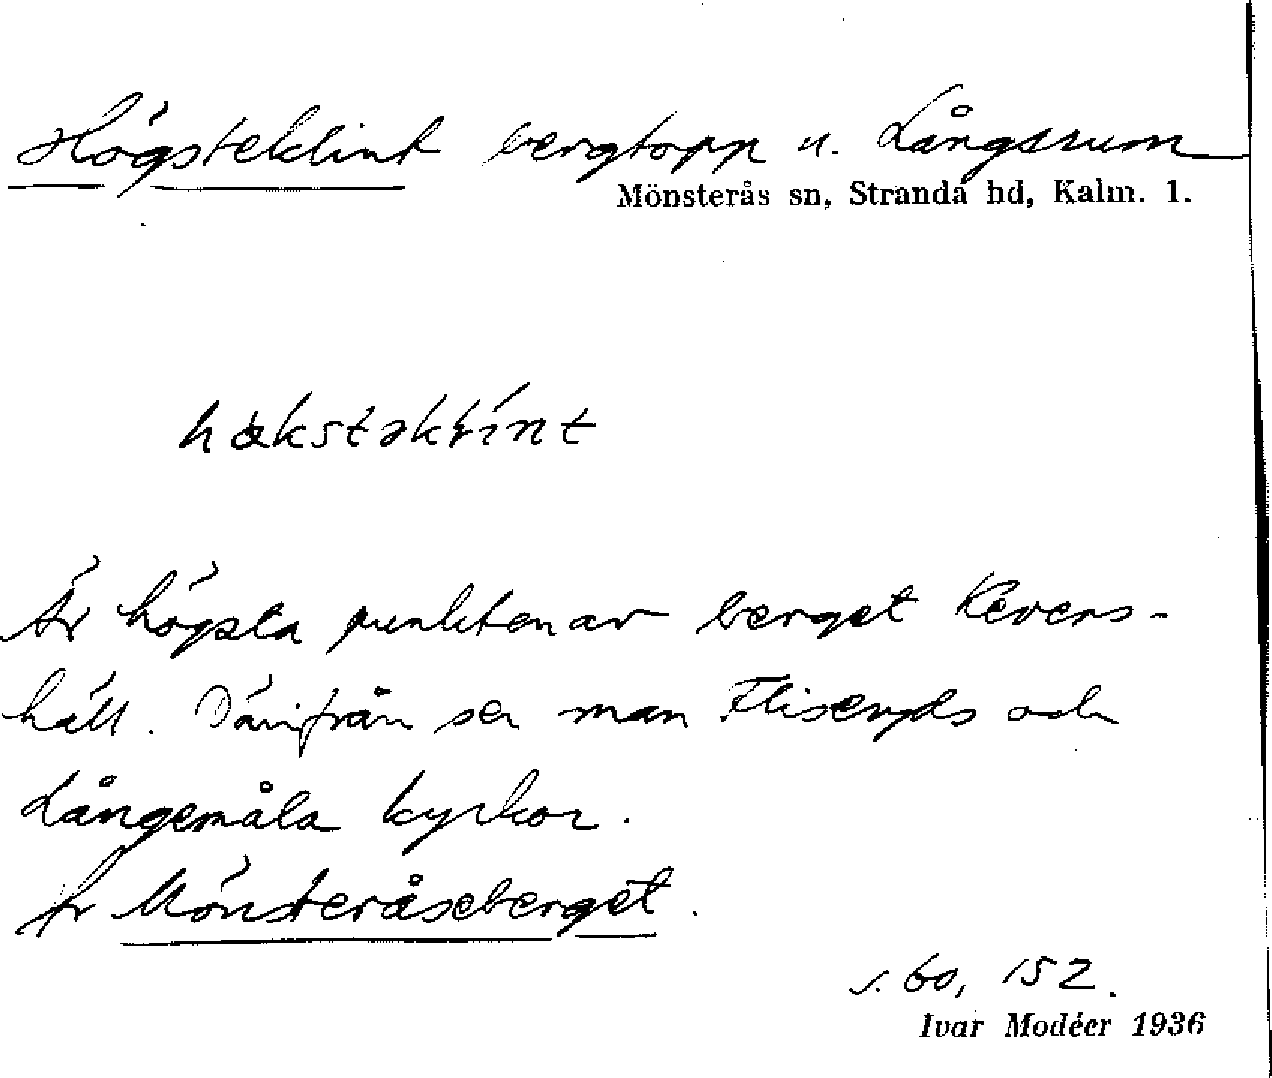 Högsteklint bergtopp u. Långsrum
Mönsterås sn, Stranda hd, Kalm. l.
Är högsta punkten av berget Kevers-
häll. Därifrån ser man Fliseryds och
Långemåla kyrkor.
fr Mönsteråseberget.
s. 60, 152.
Ivar Modéer 1936